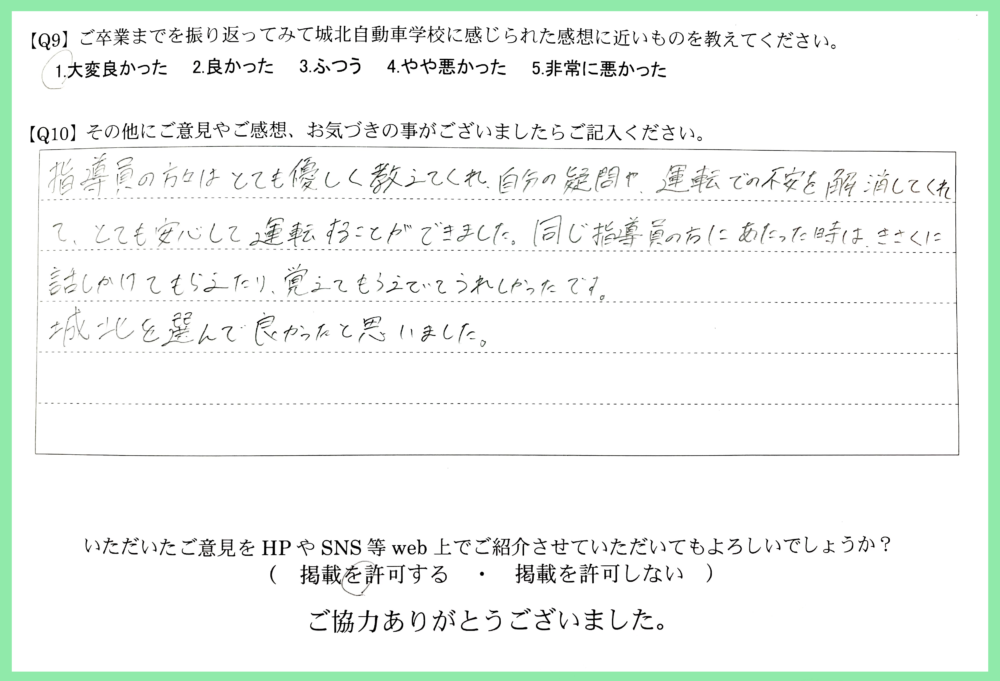 【Q9】ご卒業までを振り返ってみて城北自動車学校に感じられた感想に近いものを教えてください。
1.大変良かった 2.良かった 3.ふつう 4.やや悪かった 5.非常に悪かった
【Q10】その他にご意見やご感想、お気づきの事がございましたらご記入ください。
指導員の方々はとても優しく教えてくれ、自分の疑問や、運転での不安を解消してくれ
て、とても安心して運転することができました。同じ指導員の方にあたった時は、きさくに
話しかけてもらえたり、覚えてもらえていてうれしかったです。
城北を選んで良かったと思いました。
いただいたご意見をHPやSNS等web上でご紹介させていただいてもよろしいでしょうか？
( 掲載を許可する ・ 掲載を許可しない )
ご協力ありがとうございました。